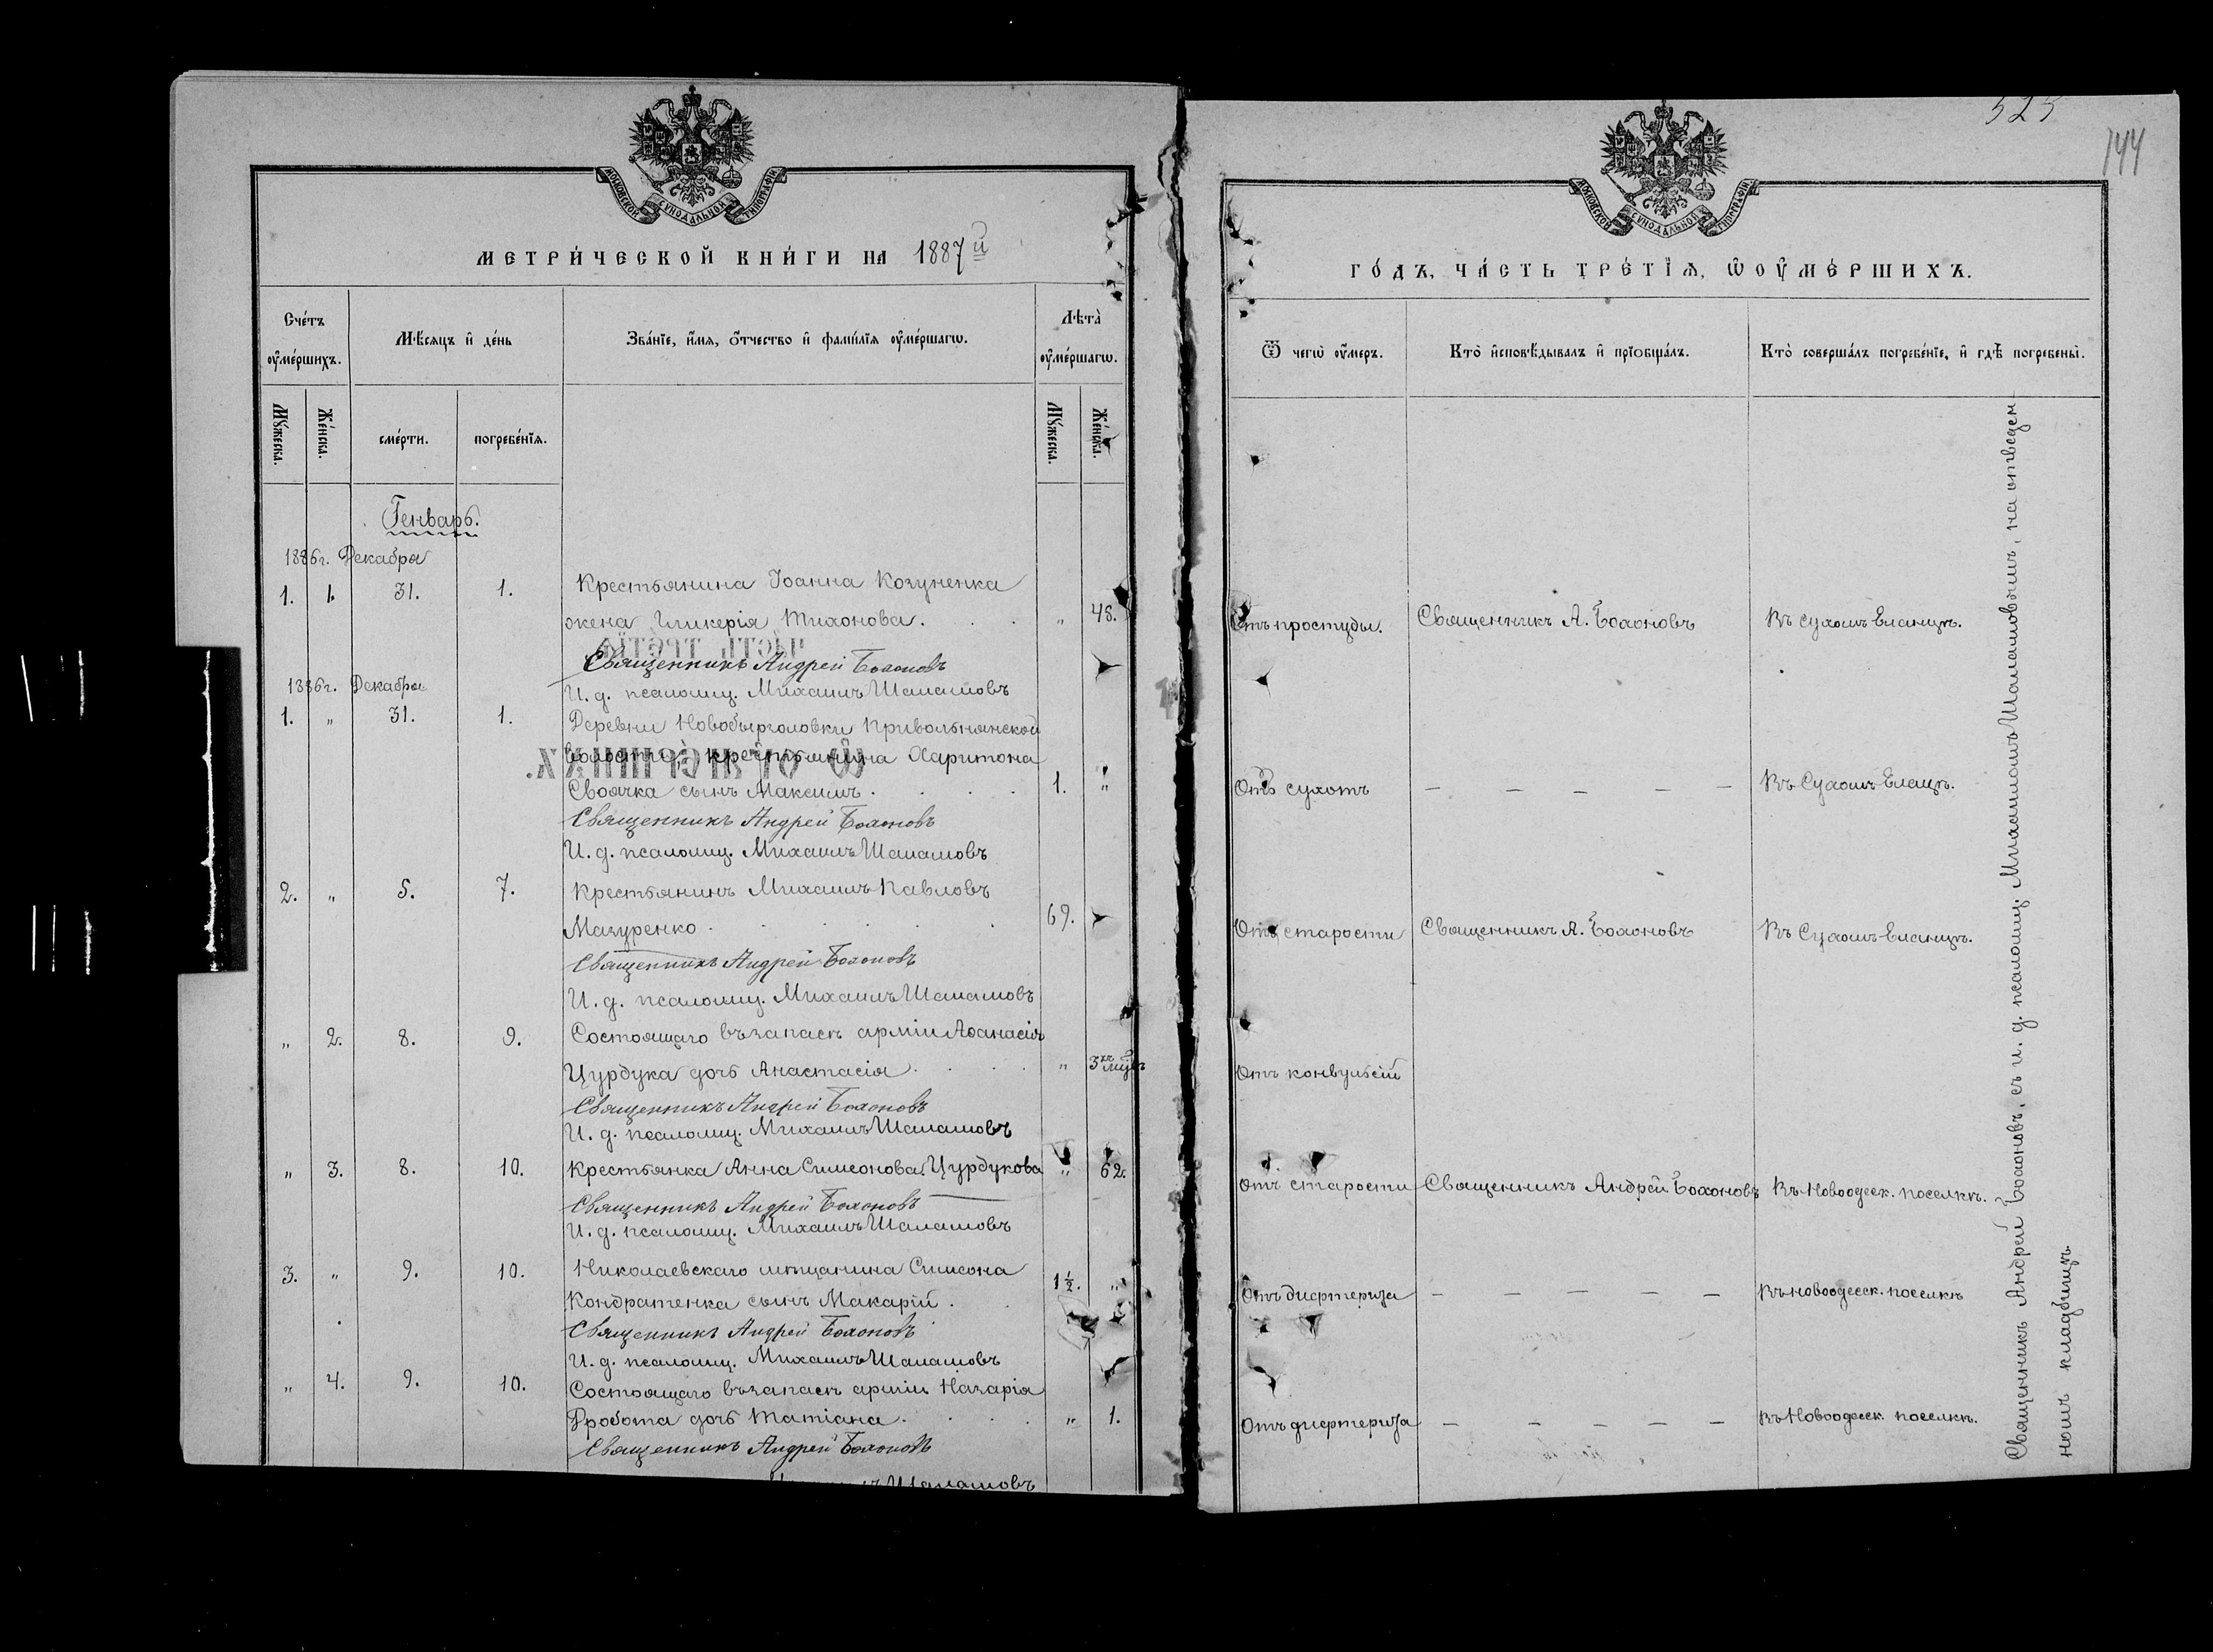 МОСКОВСКОЙ СѴНОДАЛЬНОЙ ТИПОГРАФІИ
МЕТРИ́ЧЕСКОЙ КНИ́ГИ НА 1887й
Сче́тъ оу҆ме́ршихъ.
Мѣ́сяцъ и҆ де́нь
Зва́нїе, и҆́мѧ, ѻ҆́тчество и҆ фами́лїѧ оу҆ме́ршагѡ.
Лѣ́та оу҆ме́ршагѡ.
Мꙋ́жеска.
Же́нска.
сме́рти.
погребе́нїѧ.
Мꙋ́жеска.
Же́нска.
Генварь.
1886г. Декабря
1. 1. 31. 1. Крестьянина Іоанна Козуненка
жена Гликерія Тихонова. . . „ 48.
Священникъ Андрей Бохоновъ
И. д. псаломщ. Михаилъ Шаламовъ
1886г. Декабря
1. „ 31. 1. Деревни Новобырзоловки Привольнянской
волости крестьянина Харитона
Своячка сынъ Максимъ . . . . 1. „
Священникъ Андрей Бохоновъ
И. д. псаломщ. Михаилъ Шаламовъ
2. „ 5. 7. Крестьянинъ Михаилъ Павловъ
Мазуренко . . . . . 69.
Священникъ Андрей Бохоновъ
И. д. псаломщ. Михаилъ Шаламовъ
„ 2. 8. 9. Состоящаго въ запасѣ арміи Аѳанасія
Цурдука дочь Анастасія . . . . „ 3хъ мѣс
Священникъ Андрей Бохоновъ
И. д. псаломщ. Михаилъ Шаламовъ
„ 3. 8. 10. Крестьянка Анна Симеонова Цурдукова „ 62.
Священникъ Андрей Бохоновъ
И. д. псаломщ. Михаилъ Шаламовъ
3. „ 9. 10. Николаевскаго мѣщанина Симеона
Кондратенка сынъ Макарій . . 1½. „
Священникъ Андрей Бохоновъ
И. д. псаломщ. Михаилъ Шаламовъ
„ 4. 9. 10. Состоящаго въ запасѣ арміи Назарія
Дробота дочь Татіана . . . . „ 1.
Священникъ Андрей Бохоновъ
Шаламовъ
523
144
МОСКОВСКОЙ СѴНОДАЛЬНОЙ ТИПОГРАФІИ
ГО́ДЪ, ЧА́СТЬ ТРЕ́ТЇѦ, Ѡ҆ ОУ҆МЕ́РШИХЪ.
Ѿ чегѡ̀ оу҆́меръ.
Кто̀ и҆сповѣ́дывалъ и҆ прїѡбща́лъ.
Кто̀ соверша́лъ погребе́нїе, и҆ гдѣ̀ погребены̀.
Отъ простуды. Священникъ А. Бохоновъ Въ Сухомъ Еланцѣ.
Отъ сухотъ — — — — — Въ Сухомъ Еланц.
Отъ старости Священникъ А. Бохоновъ Въ Сухомъ Еланцѣ.
Отъ конвульсій
Отъ старости Священникъ Андрей Бохоновъ Въ Новоодесск. поселкѣ.
Отъ дифтерита — — — — — Въ новоодесск. поселкѣ
Отъ дифтерита — — — — — Въ Новоодесск. поселкѣ.
Священникъ Андрей Бохоновъ, съ и. д. псаломщ. Михаиломъ Шаламовымъ, на отведен-
номъ кладбищѣ.